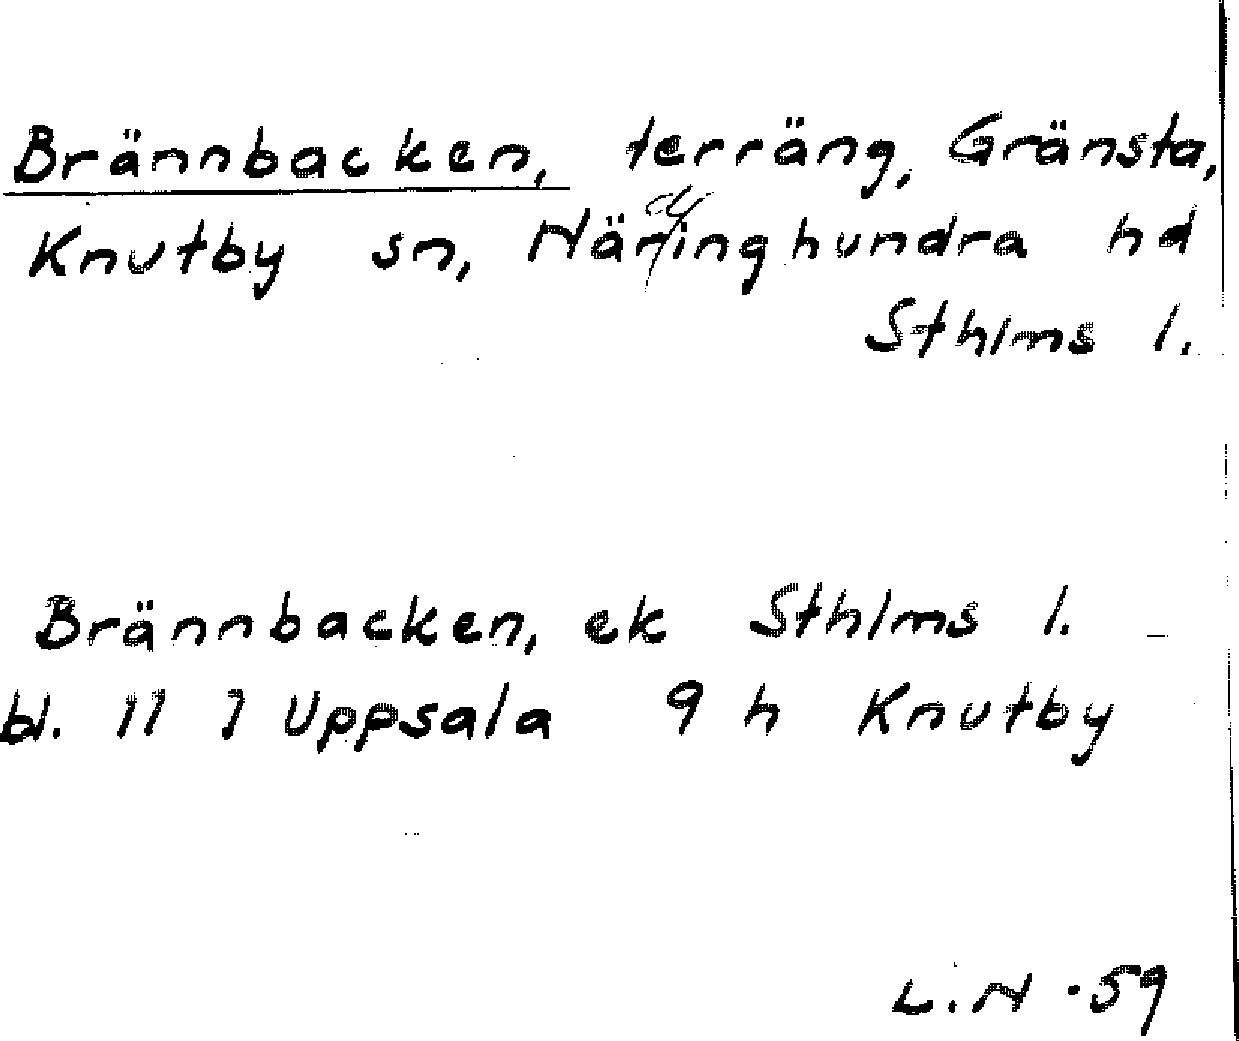 Brännbacken, terräng, Gränsta,
Knutby sn, Närdinghundra hd
Sthlms l.
Brännbacken, ek Sthlms l.
bl. 11 7 Uppsala 9 h Knutby
L.N -59